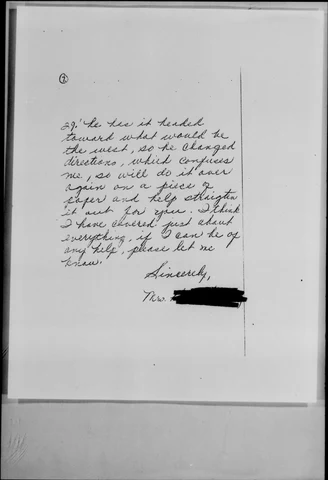 7
29! he has it headed
toward what would be
the west, so he changed
directions, which confuses
me, so will do it over
again on a piece of
paper and help straighten
it out for you. I think
I have covered just about
everything, if I can be of
any help, please let me
know.
Sincerely,
Mrs.